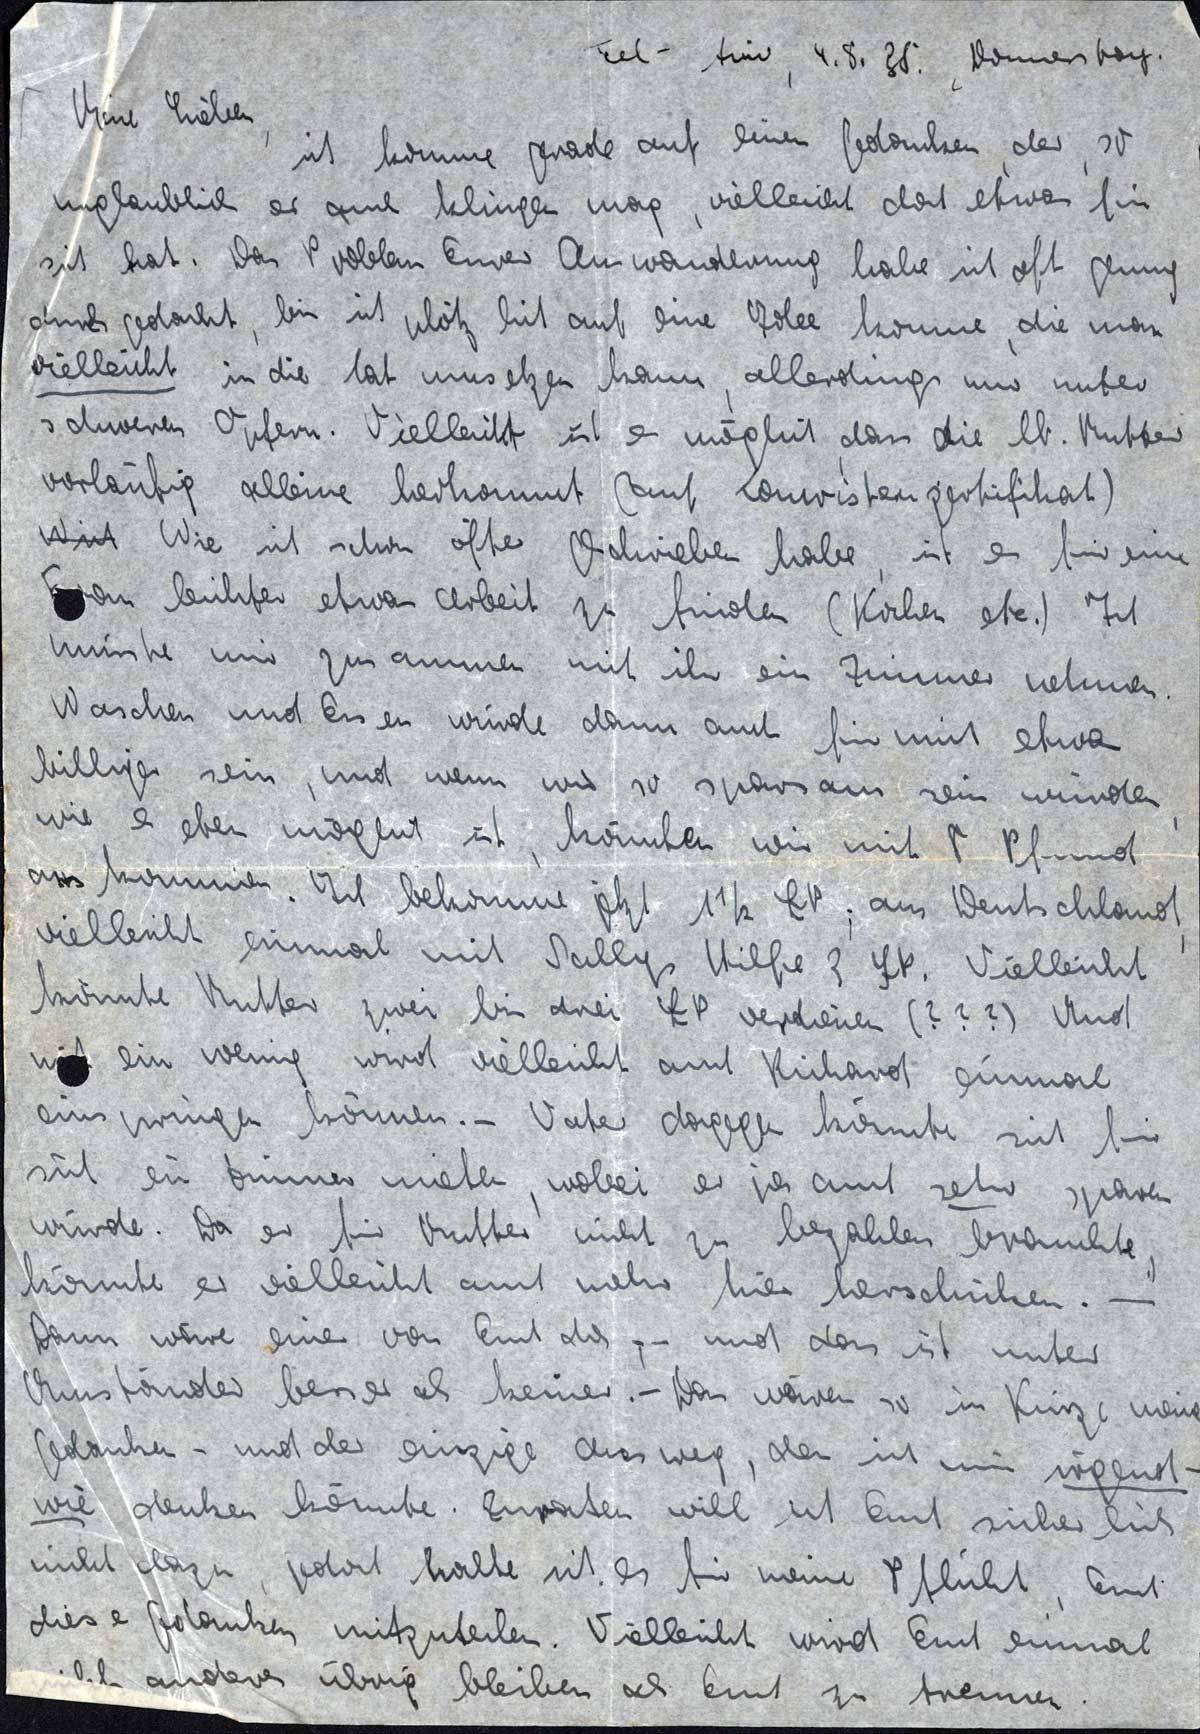 Tel-Aviv, 4.8.38., Donnerstag.
Meine Lieben,
ich komme gerade auf einen Gedanken, der, so
unglaublich er auch klingen mag, vielleicht doch etwas für
sich hat. Das Problem Eurer Auswanderung habe ich oft genug
durch gedacht, bis ich plötzlich auf eine Idee komme, die man
vielleicht in die Tat umsetzen kann, allerdings nur unter
schweren Opfern. Vielleicht ist es möglich, dass die lb. Mutter
vorläufig alleine herkommt (auf Touristenzertifikat)
Wie ich schon öfter geschrieben habe, ist es für eine
Frau leichter etwas Arbeit zu finden (Kochen etc.) Ich
müsste mir zusammen mit ihr ein Zimmer nehmen.
Waschen und Essen würde dann auch für mich etwas
billiger sein, und wenn wir so sparsam sein würden,
wie es eben möglich ist, könnten wir mit Pfund
aus kommen. Ich bekomme jetzt 1 1/2 £P, aus Deutschland,
vielleicht einmal mit Sallys Hilfe 3 £P. Vielleicht
könnte Mutter zwei bis drei £P verdienen (???) Und
mit ein wenig wird vielleicht auch Richard einmal
einspringen können. – Vater dagegen könnte sich für
sich ein Zimmer mieten, wobei er ja auch sehr sparen
würde. Da er für Mutter nicht zu bezahlen brauchte,
könnte er vielleicht auch mehr hier herschicken. —
Dann wäre einer von Euch da, – und das ist unter
Umständen besser als keiner. – Das wären so in Kürze meine
Gedanken – und der einzige Ausweg, den ich mir irgend-
wie denken könnte. Zuraten will ich Euch sicherlich
nicht dazu, jedoch halte ich es für meine Pflicht, Euch
diese Gedanken mitzuteilen. Vielleicht wird Euch einmal
nichts anderes übrig bleiben als Euch zu trennen.